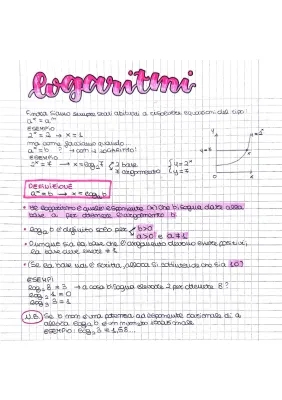 logaritmi
Finora siamo sempre stati abituati a risolvere equazioni del tipo:
aˣ = aⁿ
ESEMPIO
2ˣ = 2 → x = 1
ma come facciamo quando:
aˣ = b ? → con i LOGARITMI!
ESEMPIO
2ˣ = 7 → x = log₂7 { 2 base { y = 2ˣ
7 argomento { y = 7
DEFINIZIONE
aˣ = b → x = logₐb
• Il logaritmo è quell'esponente (x) che bisogna dare alla
base a per ottenere l'argomento b
• logₐ b è definito solo per { b>0
a>0 e a≠1
• Dunque sia la base che l'argomento devono essere positivi,
la base deve essere ≠ 1
• (Se la base non è scritta, allora si sottintende che sia 10)
ESEMPI
log₂ 8 = 3 → a cosa bisogna elevare 2 per ottenere 8?
log₂ 1 = 0
log₃ 3 = 1
N.B. Se b non è una potenza ad esponente razionale di a
allora logₐ b è un numero irrazionale
ESEMPIO: log₂ 3 = 1,58...